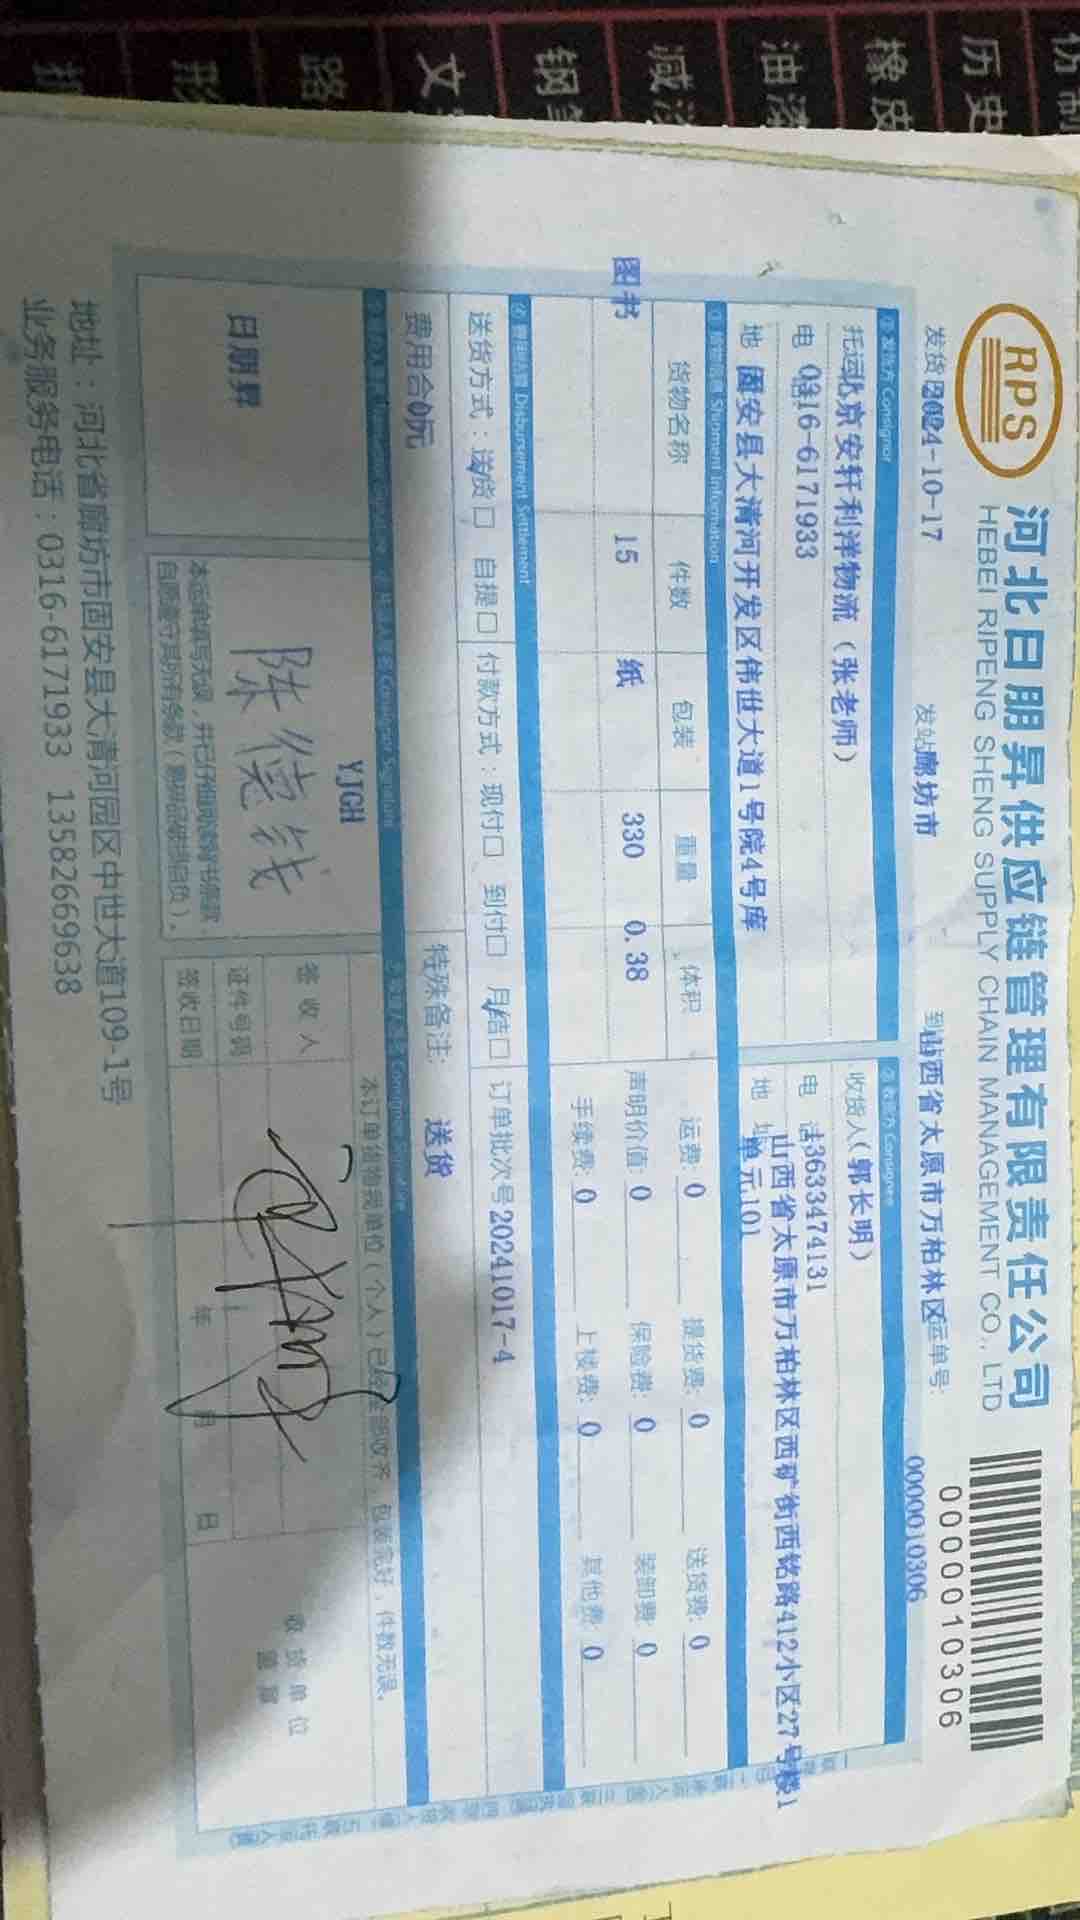 RPS
河北日朋昇供应链管理有限责任公司
HEBEI RIPENG SHENG SUPPLY CHAIN MANAGEMENT CO., LTD
0000010306
发货 2024-10-17 发站 廊坊市 到站 山西省太原市万柏林区 运单号: 0000010306
①发货方 Consignor ②收货方 Consignee
托运 北京安轩利洋物流（张老师） 收货人(郭长明)
电话 0316-6171933 电 话 13633474131
地 固安县大清河开发区伟世大道1号院4号库 地 址 山西省太原市万柏林区西矿街西铭路412小区27号楼1
单元101
③货物信息 Shipment Information
货物名称 件数 包装 重量 体积 运费: 0 提货费: 0 送货费: 0
图书 15 纸 330 0.38 声明价值: 0 保险费: 0 装卸费: 0
手续费: 0 上楼费: 0 其他费: 0
④费用结算 Disbursement Settlement
送货方式：送货口 自提口 付款方式：现付口 到付口 月结口 订单批次号 20241017-4
费用合 0元 特殊备注: 送货
Consignor Signature
日朋昇
YJGH
本运单填写无误，并已仔细阅读背书条款，
自愿遵守其所有条款（易碎品破损自负）。
本订单货物我单位（个人）已经全部收齐，包装完好，件数无误。
签 收 人
证件号码
签收日期 年 月 日
收 货 单 位
盖 章
地址：河北省廊坊市固安县大清河园区中世大道109-1号
业务服务电话：0316-6171933 13582669638